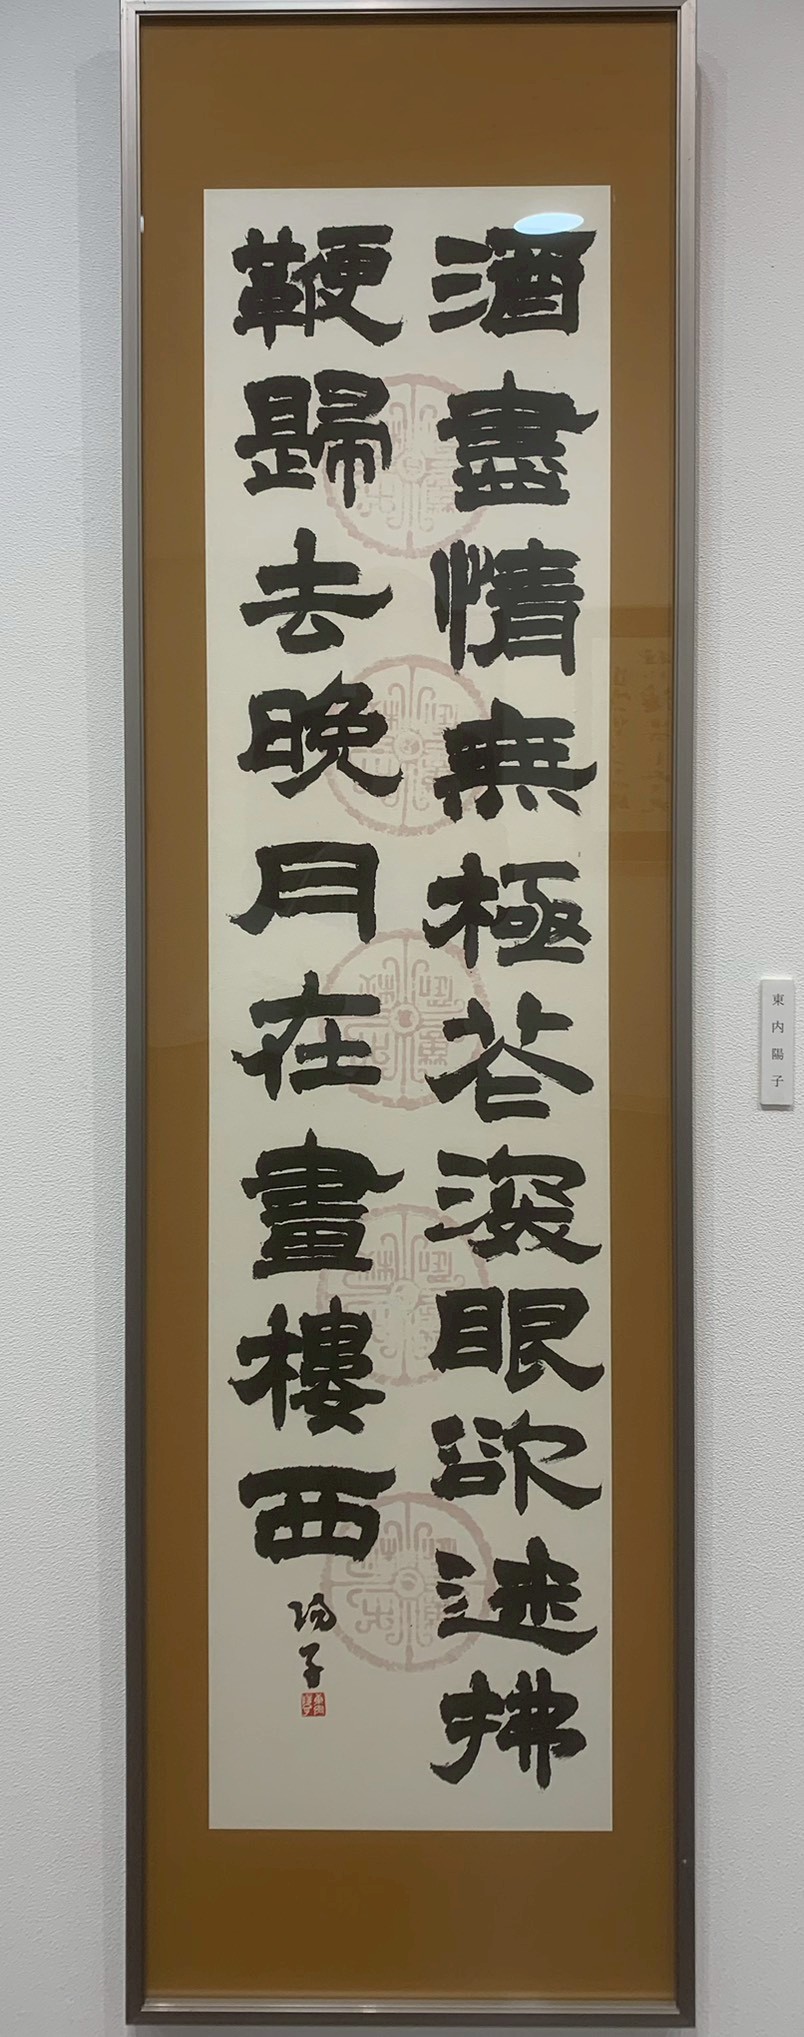 酒盡情無極花深眼欲迷拂
鞭歸去晚月在畫樓西
陽子
東内陽子